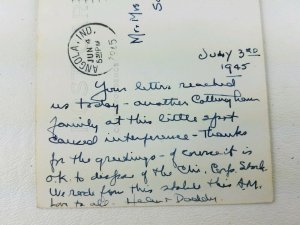 Mr. & Mrs
ANGOLA, IND.
JUN 4
5 30 PM
1945
July 3rd
1945
Your letters reached
us today - another Cottingham
family at this little spot
caused interference - Thanks
for the greetings - of course it is
O.K. to dispose of the Chi. Corp. Stock
We rode from this stable this A.M.
Love to all. Helen & Daddy